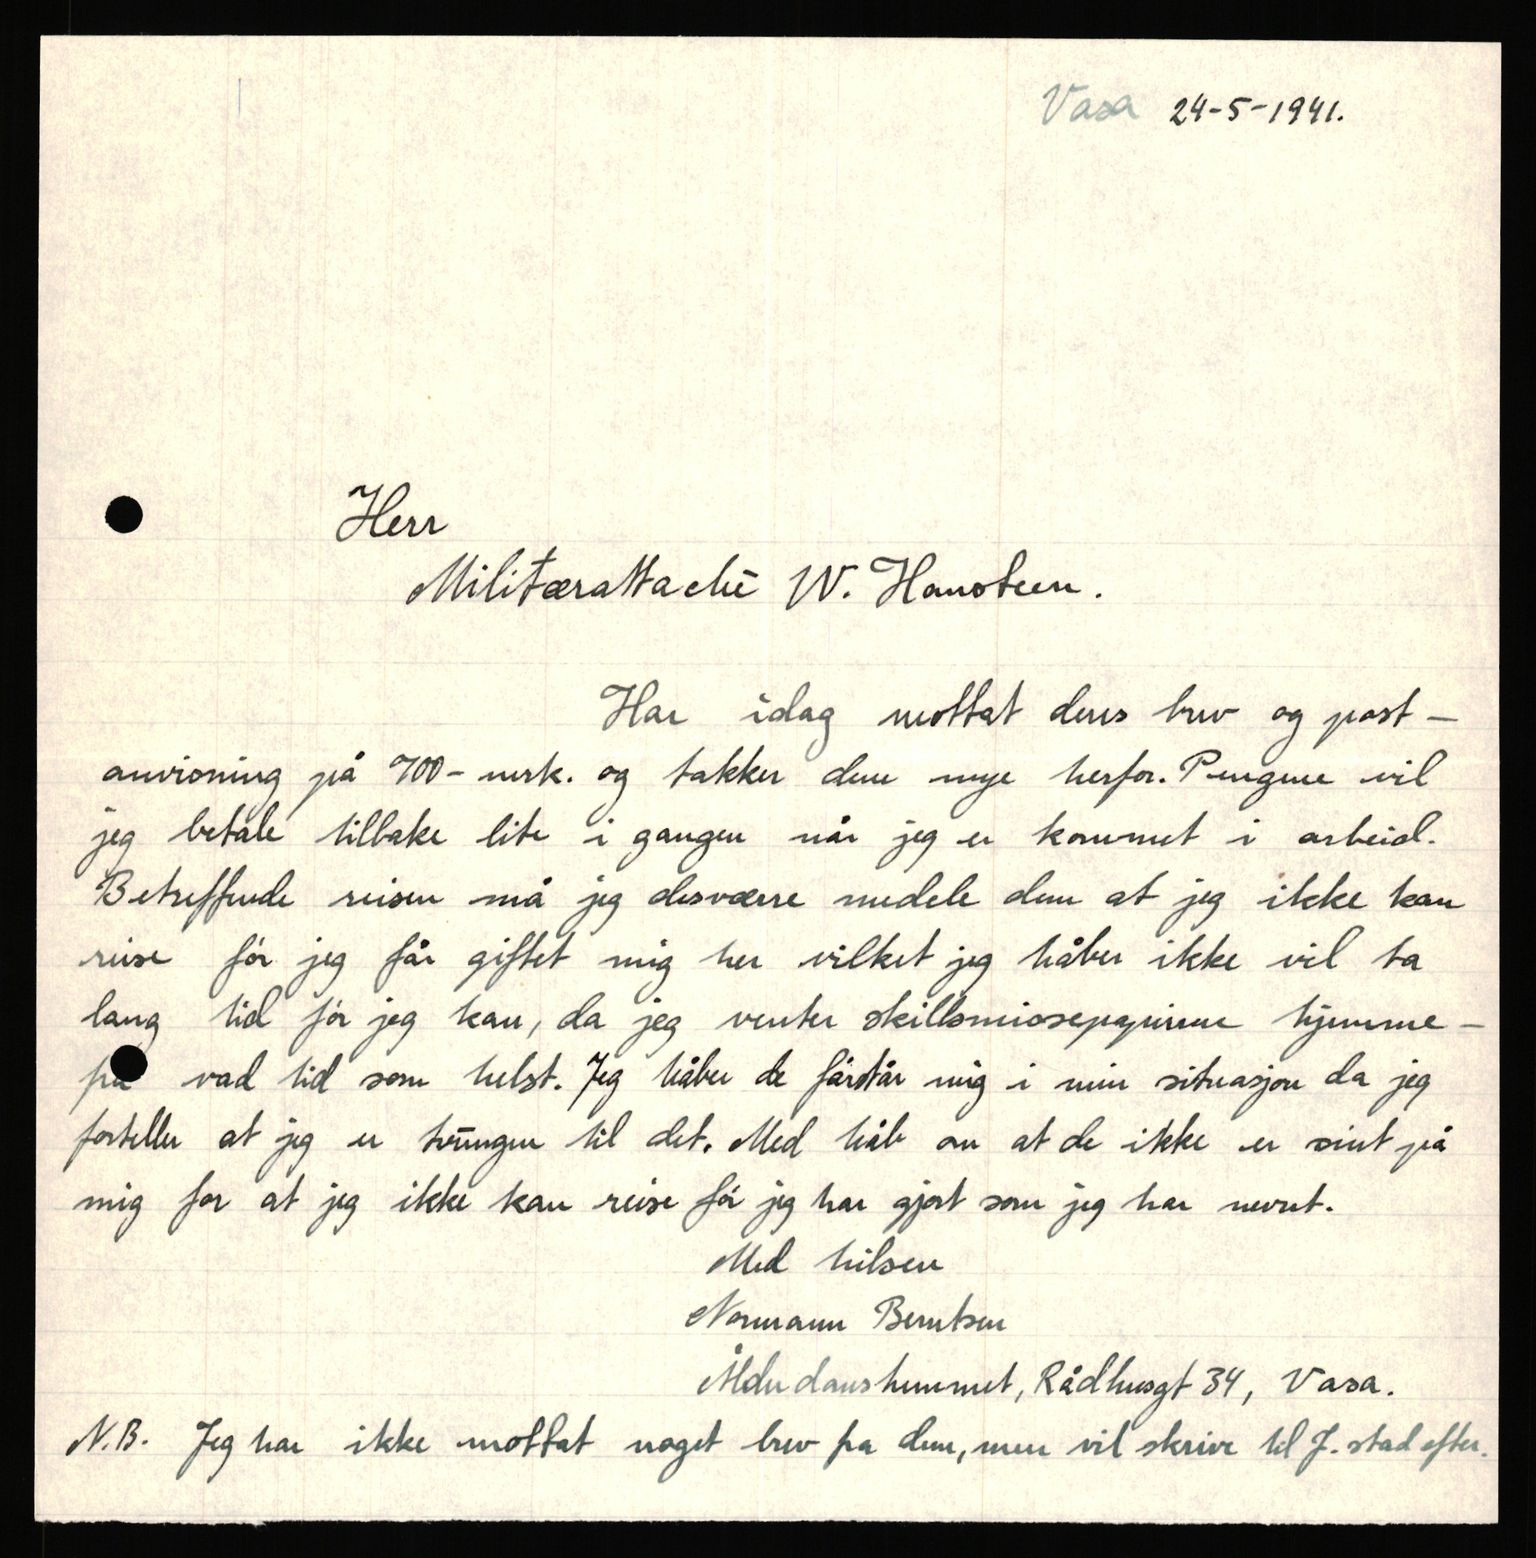 Vasa 24-5-1941.
Herr
Militærattaché W. Hansteen.
Har idag mottat deres brev og post-
anvisning på 700- mrk. og takker dem mye herfor. Pengene vil
jeg betale tilbake lite i gangen når jeg er kommet i arbeid.
Betreffende reisen må jeg desværre medele dem at jeg ikke kan
reise før jeg får giftet mig her vilket jeg håber ikke vil ta
lang tid før jeg kan, da jeg venter skillsmissepapirene hjemme-
fra vad tid som helst. Jeg håber de førstår mig i min situasjon da jeg
forteller at jeg er tvungen til det. Med håb om at de ikke er sint på
mig for at jeg ikke kan reise før jeg har gjort som jeg har nevnt.
Med hilsen
Normann Berntsen
Ålderdomshemmet, Rådhusgt 34, Vasa.
N.B. Jeg har ikke mottat noget brev fra dem, men vil skrive til J. stad efter.